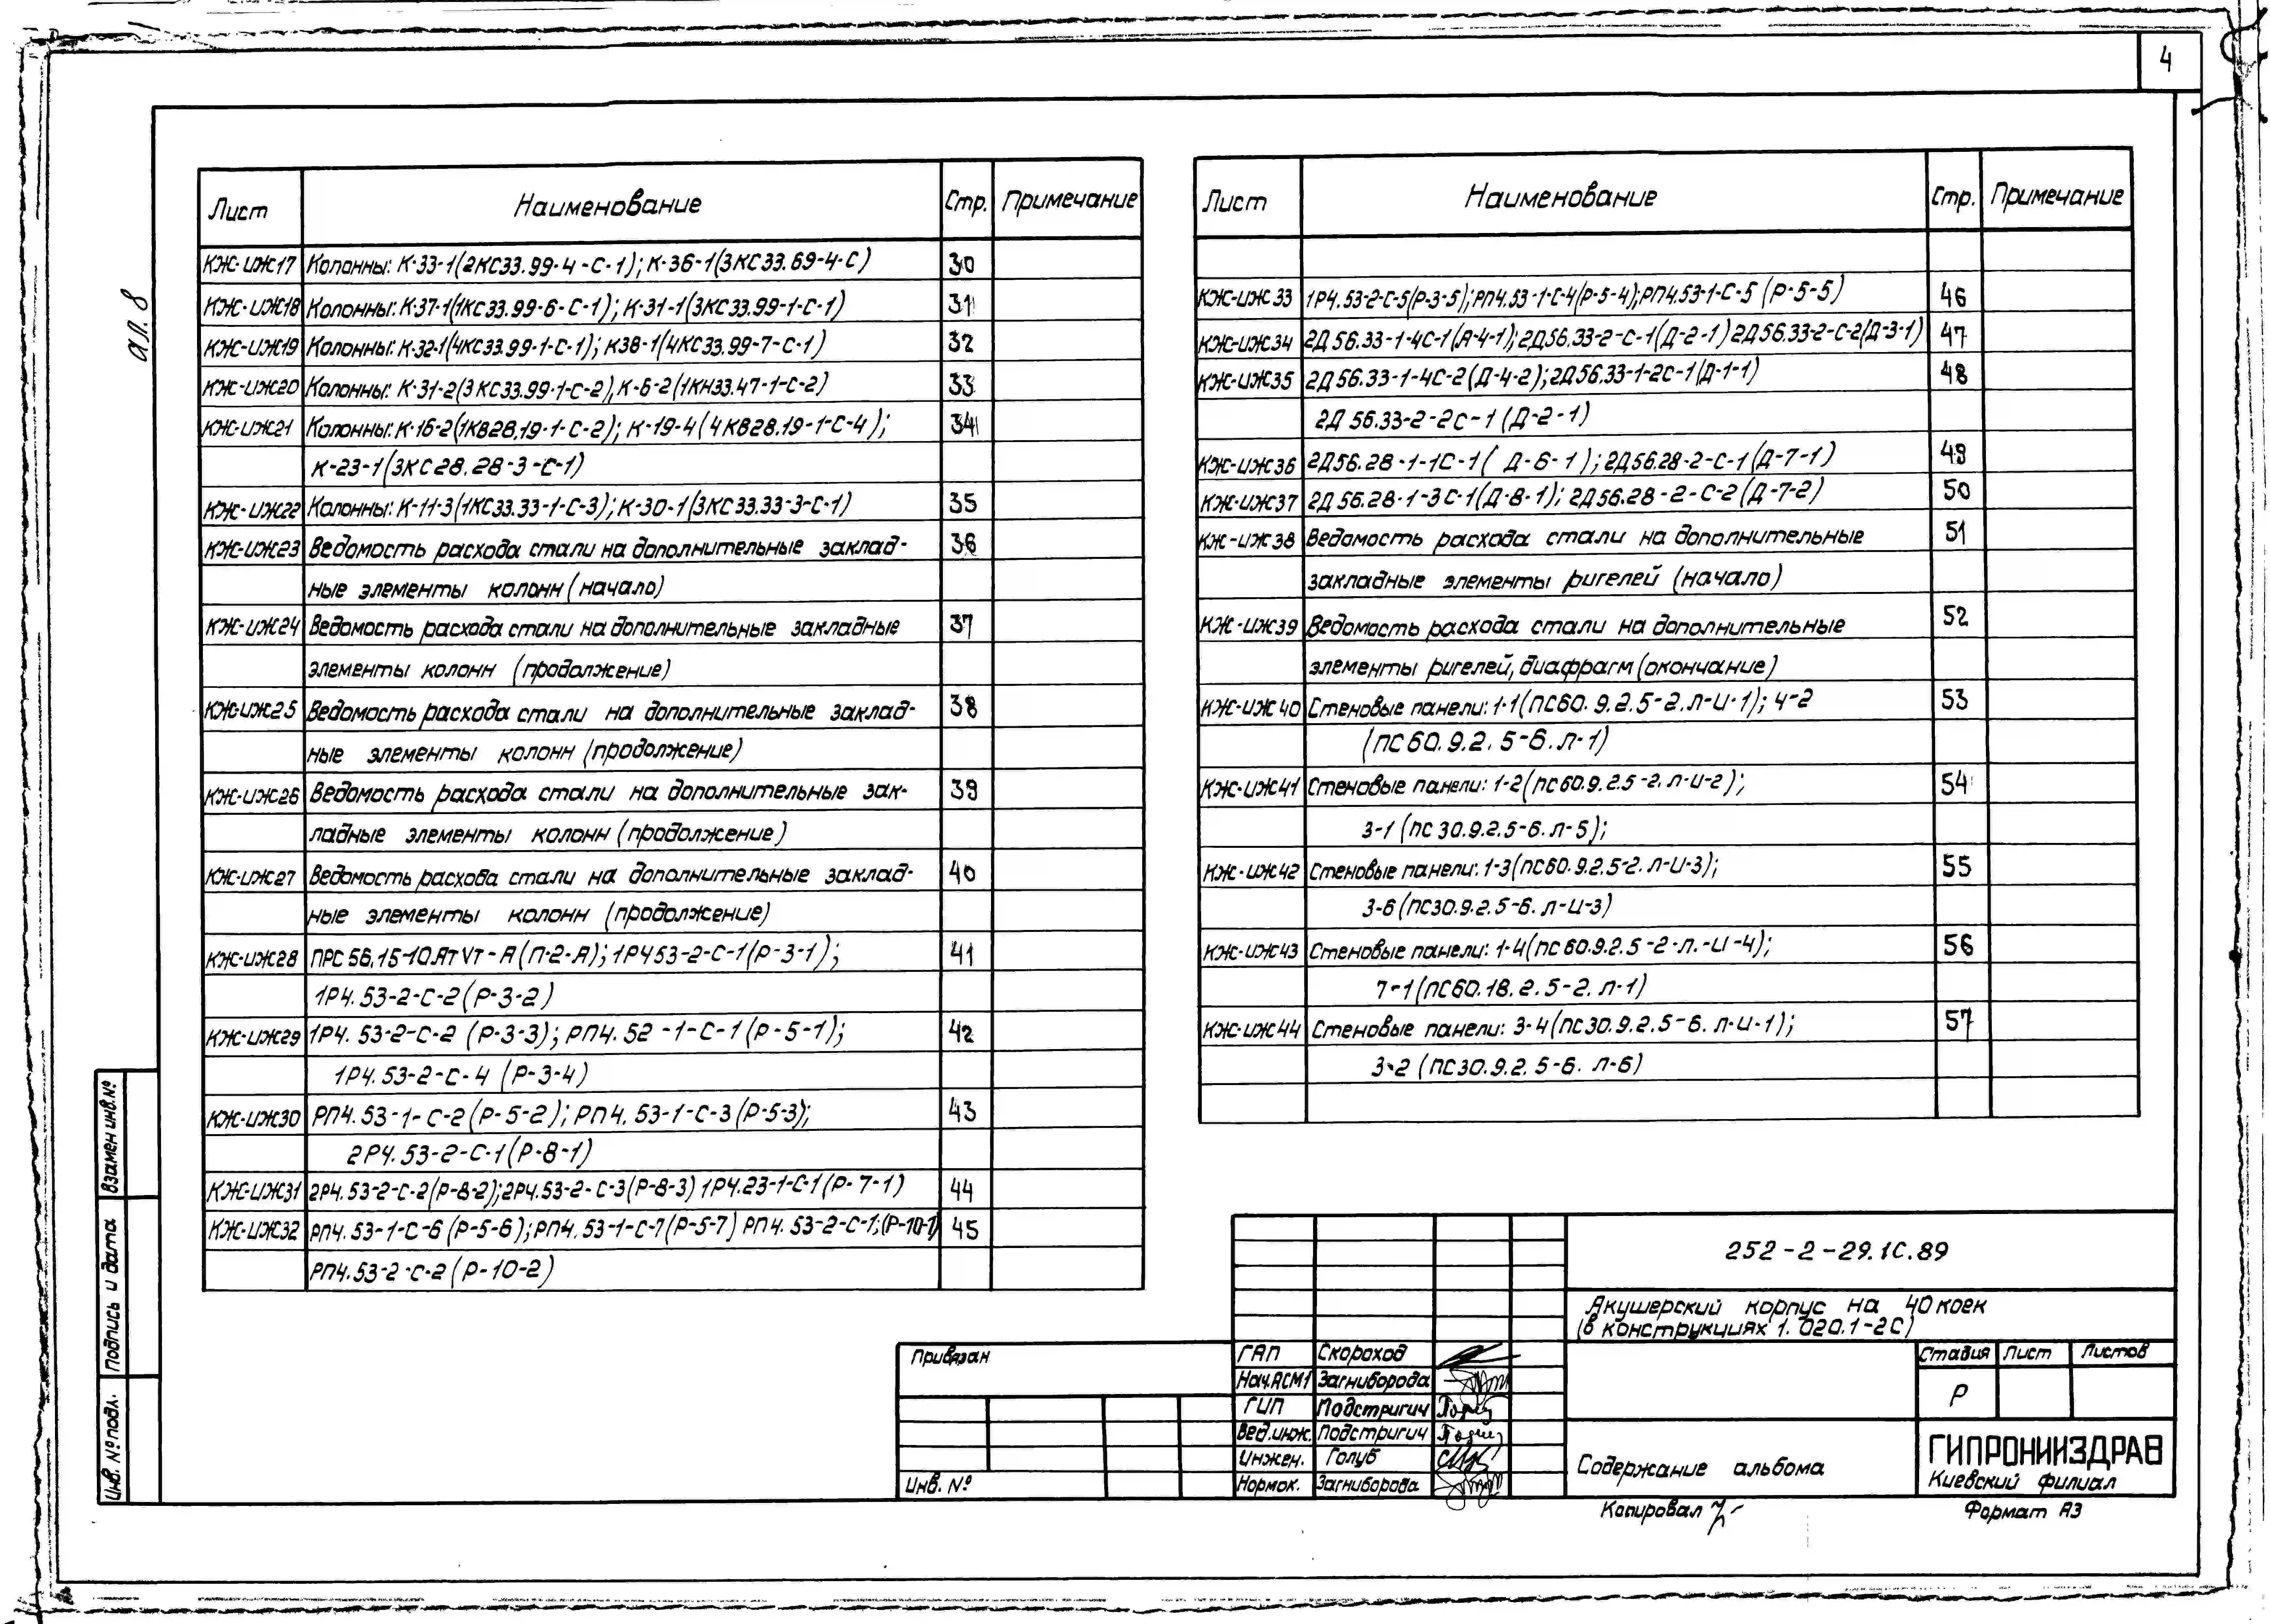 4
ал. 8
Лист Наименование Стр. Примечание
КЖ-ИЖ17 Колонны: К-33-1(2КС33.99-4-С-1); К-36-1(3КС33.69-4-С) 30
КЖ-ИЖ18 Колонны: К-37-1(1КС33.99-6-С-1); К-31-1(3КС33.99-1-С-1) 31
КЖ-ИЖ19 Колонны: К-32-1(4КС33.99-1-С-1); К38-1(4КС33.99-7-С-1) 32
КЖ-ИЖ20 Колонны: К-31-2(3КС33.99-1-С-2), К-6-2(1КН33.47-1-С-2) 33
КЖ-ИЖ21 Колонны: К-16-2(1КВ28.19-1-С-2); К-19-4(4КВ28.19-1-С-4); 34
К-23-1(3КС28.28-3-С-1)
КЖ-ИЖ22 Колонны: К-11-3(1КС33.33-1-С-3); К-30-1(3КС33.33-3-С-1) 35
КЖ-ИЖ23 Ведомость расхода стали на дополнительные заклад- 36
ные элементы колонн (начало)
КЖ-ИЖ24 Ведомость расхода стали на дополнительные закладные 37
элементы колонн (продолжение)
КЖ-ИЖ25 Ведомость расхода стали на дополнительные заклад- 38
ные элементы колонн (продолжение)
КЖ-ИЖ26 Ведомость расхода стали на дополнительные зак- 39
ладные элементы колонн (продолжение)
КЖ-ИЖ27 Ведомость расхода стали на дополнительные заклад- 40
ные элементы колонн (продолжение)
КЖ-ИЖ28 ПРС 56.15-10.АтVт-А (П-2-А); 1Р453-2-С-1(Р-3-1); 41
1Р4.53-2-С-2(Р-3-2)
КЖ-ИЖ29 1Р4.53-2-С-2 (Р-3-3); РП4.52-1-С-1(Р-5-1); 42
1Р4.53-2-С-4 (Р-3-4)
КЖ-ИЖ30 РП4.53-1-С-2(Р-5-2); РП4.53-1-С-3(Р-5-3); 43
2Р4.53-2-С-1(Р-8-1)
КЖ-ИЖ31 2Р4.53-2-С-2(Р-8-2); 2Р4.53-2-С-3(Р-8-3) 1Р4.23-1-С-1(Р-7-1) 44
КЖ-ИЖ32 РП4.53-1-С-6 (Р-5-6); РП4.53-1-С-7(Р-5-7) РП4.53-2-С-1;(Р-10-1) 45
РП4.53-2-С-2 (Р-10-2)
Лист Наименование Стр. Примечание
КЖ-ИЖ33 1Р4.53-2-С-5(Р-3-5); РП4.53-1-С-4(Р-5-4); РП4.53-1-С-5 (Р-5-5) 46
КЖ-ИЖ34 2Д56.33-1-4С-1(Д-4-1); 2Д56.33-2-С-1(Д-2-1) 2Д56.33-2-С-2(Д-3-1) 47
КЖ-ИЖ35 2Д56.33-1-4С-2(Д-4-2); 2Д56.33-1-2С-1(Д-1-1) 48
2Д56.33-2-2С-1(Д-2-1)
КЖ-ИЖ36 2Д56.28-1-1С-1(Д-6-1); 2Д56.28-2-С-1(Д-7-1) 49
КЖ-ИЖ37 2Д56.28-1-3С-1(Д-8-1); 2Д56.28-2-С-2(Д-7-2) 50
КЖ-ИЖ38 Ведомость расхода стали на дополнительные 51
закладные элементы ригелей (начало)
КЖ-ИЖ39 Ведомость расхода стали на дополнительные 52
элементы ригелей, диафрагм (окончание)
КЖ-ИЖ40 Стеновые панели: 1-1(ПС60.9.2.5-2.Л-И-1); 4-2 53
(ПС60.9.2.5-6.Л-1)
КЖ-ИЖ41 Стеновые панели: 1-2(ПС60.9.2.5-2.Л-И-2); 54
3-1 (ПС30.9.2.5-6.Л-5);
КЖ-ИЖ42 Стеновые панели: 1-3(ПС60.9.2.5-2.Л-И-3); 55
3-6(ПС30.9.2.5-6.Л-И-3)
КЖ-ИЖ43 Стеновые панели: 1-4(ПС60.9.2.5-2-Л.-И-4); 56
7-1(ПС60.18.2.5-2.Л-1)
КЖ-ИЖ44 Стеновые панели: 3-4(ПС30.9.2.5-6.Л-И-1); 57
3-2 (ПС30.9.2.5-6.Л-6)
Взамен инв.№
Подпись и дата
Инв. № подл.
252-2-29.1С.89
Акушерский корпус на 40 коек
(в конструкциях 1.020.1-2С)
Привязан
Инв. №
ГАП Скороход
Нач.АСМ1 Загниборода
ГИП Подстригич
Вед.инж. Подстригич
Инжен. Голуб
Нормок. Загниборова
Стадия Лист Листов
Р
Содержание альбома
ГИПРОНИИЗДРАВ
Киевский филиал
Копировал
Формат А3